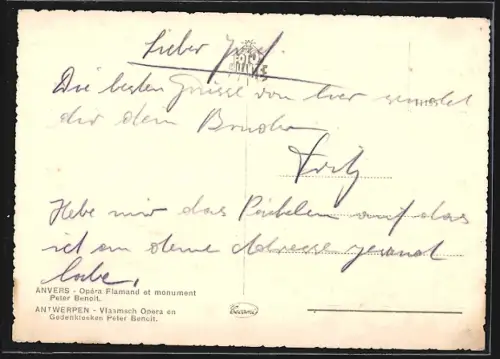 Lieber Josef.
Die besten Grüsse von hier sendet
dir dein Bruder
Fritz
Hebe mir das Päckelen auf das
ich an deine Adresse gesand
habe.
ANVERS - Opéra Flamand et monument
Peter Benoit.
ANTWERPEN - Vlaamsch Opera en
Gedenkteeken Peter Benoit.